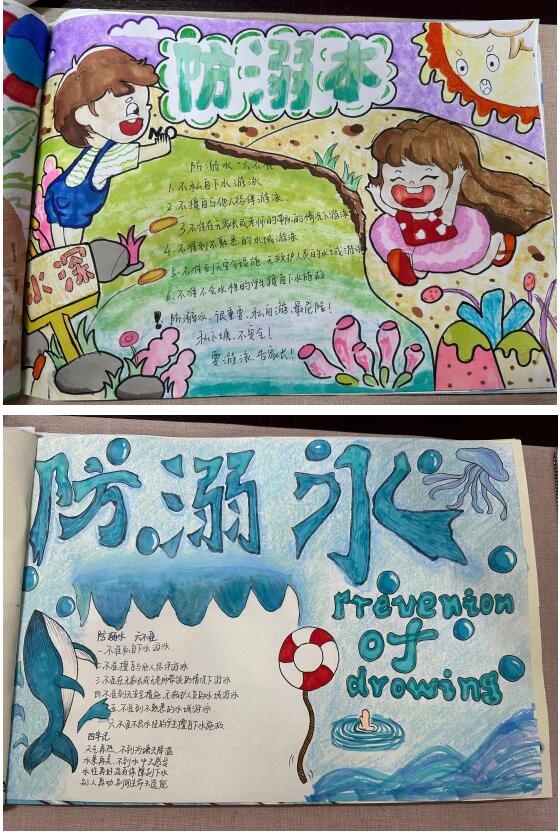 防溺水
NO
防溺水"六不准"
1.不私自下水游泳
2.不擅自与他人结伴游泳
3.不准在无家长或老师的带领的情况下游泳
4.不准到不熟悉的水域游泳
5.不准到无安全设施、无救护人员的水域游泳
6.不准不会水性的学生擅自下水施救
！防溺水,很重要,私自游,最危险!
私下塘,不安全!
要游泳,告家长!
水深
防溺水
Prevention
of
drowing
防溺水 六不准
一.不准私自下水游泳
二.不准擅自与他人结伴游泳
三.不准在无家长或老师带领的情况下游泳
四.不准到无安全设施、无救护人员的水域游泳
五.不准到不熟悉的水域游泳
六.不准不会水性的学生擅自下水施救
四牢记
天气再热,不到沟塘去降温
水果再美,不到水中去
水性再好没有保障别下水
别人再劝